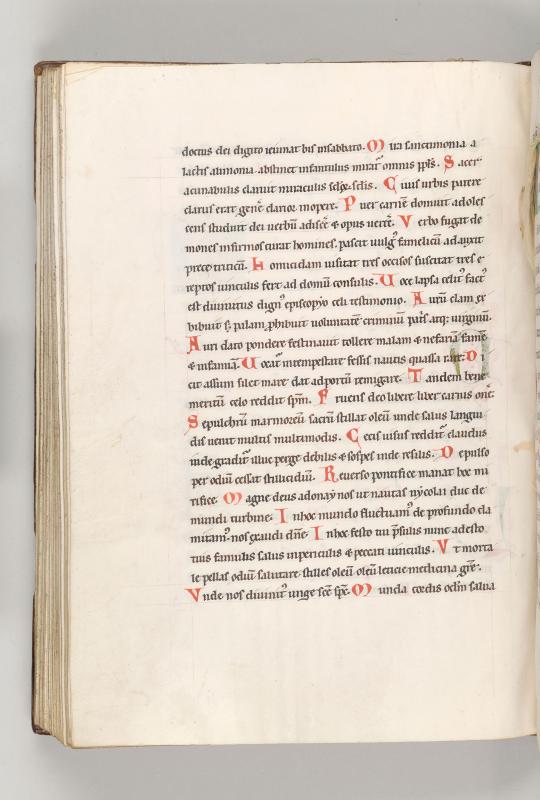 doctus dei digito ieiunat bis insabbato. Mira sanctimonia a
lactis alimonia abstinet infantulus mirat᷒ omnis ppl̃s. Sacer
acunabulis claruit miraculis sclȝe sclis. Cuius urbis patere
clarus erat genẽ clarior mopere. Puer carnẽ domuit adoles
cens studuit dei uerbũ adiscẽ & opus uerẽ. Verbo fugat de
mones infirmos curat homines. pascit uulgꝰ famelicũ adauxit
prece triticũ. Homicidam uisitat tres occisos suscitat tres e
reptos uinculis fert ad domũ consulis. Uoce lapsa celitꝰ factꝰ
est diuinitus dignꝰ episcopio celi testimonio. Aurũ clam ex
bibuit sȝ palam ꝓhibuit uoluntatẽ criminũ pat᷒s atqȝ uirginũ.
Auri dato pondere festinauit tollere malam & nefariã famẽ
& infamiã. Uocat᷒ intempestate fessis nautis quassa rate. Di
cit assum silet mare dat adportũ remigare. Tandem bene
meritũ celo reddit sp̃m. Fruens deo libere liber carnis onẽ.
Sepulchrũ marmoreũ sacrũ stillat oleũ unde salus langui
dis uenit multis multimodis. Cecis uisus reddit᷒ claudus
inde gradit᷒ illuc perge debilis & sospes inde resilis. Depulso
per odiũ cessat stillicidiũ. Reuerso pontifice manat hoc mi
rifice. Magne deus adonay nos ut nautas nycolai duc de
mundi turbine. In hoc mundo fluctuamꝰ de profundo cla
mitamꝰ nos exaudi dñe. In hoc festo tui p̃sulis nunc adesto
tuis famulis salus inpericulis & peccati uinculis. Vt morta
le pellas odiũ salutare stilles oleũ oleũ leticie medicina grẽ.
Vnde nos diuinitꝰ unge scẽ spc̃. Munda cordis oclm salua